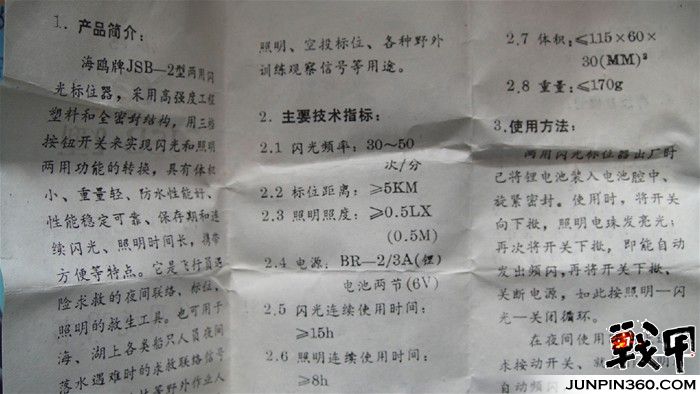 1. 产品简介：
海鸥牌JSB—2型两用闪
光标位器，采用高强度工程
塑料和全密封结构，用三档
按钮开关来实现闪光和照明
两用功能的转换，具有体积
小、重量轻、防水性能好、
性能稳定可靠、保存期和连
续闪光、照明时间长，携带
方便等特点。它是飞行员遇
险求救的夜间联络、标位、
照明的救生工具。也可用于
海、湖上各类船只人员夜间
落水遇难时的求救联络信号
等野外作业人
照明、空投标位、各种野外
训练观察信号等用途。
2. 主要技术指标：
2.1 闪光频率：30～50
次/分
2.2 标位距离：≥5KM
2.3 照明照度：≥0.5LX
(0.5M)
2.4 电源：BR—2/3A(锂)
电池两节(6V)
2.5 闪光连续使用时间：
≥15h
2.6 照明连续使用时间：
≥8h
2.7 体积：≤115×60×
30(MM)³
2.8 重量：≤170g
3.使用方法：
两用闪光标位器出厂时
已将锂电池装入电池腔中、
旋紧密封。使用时，将开关
向下揿，照明电珠发亮光；
再次将开关下揿，即能自动
发出频闪,再将开关下揿、
关断电源，如此按照明—闪
光—关闭循环。
在夜间使用
未按动开关、
自动频闪
战甲
JUNPIN360.COM